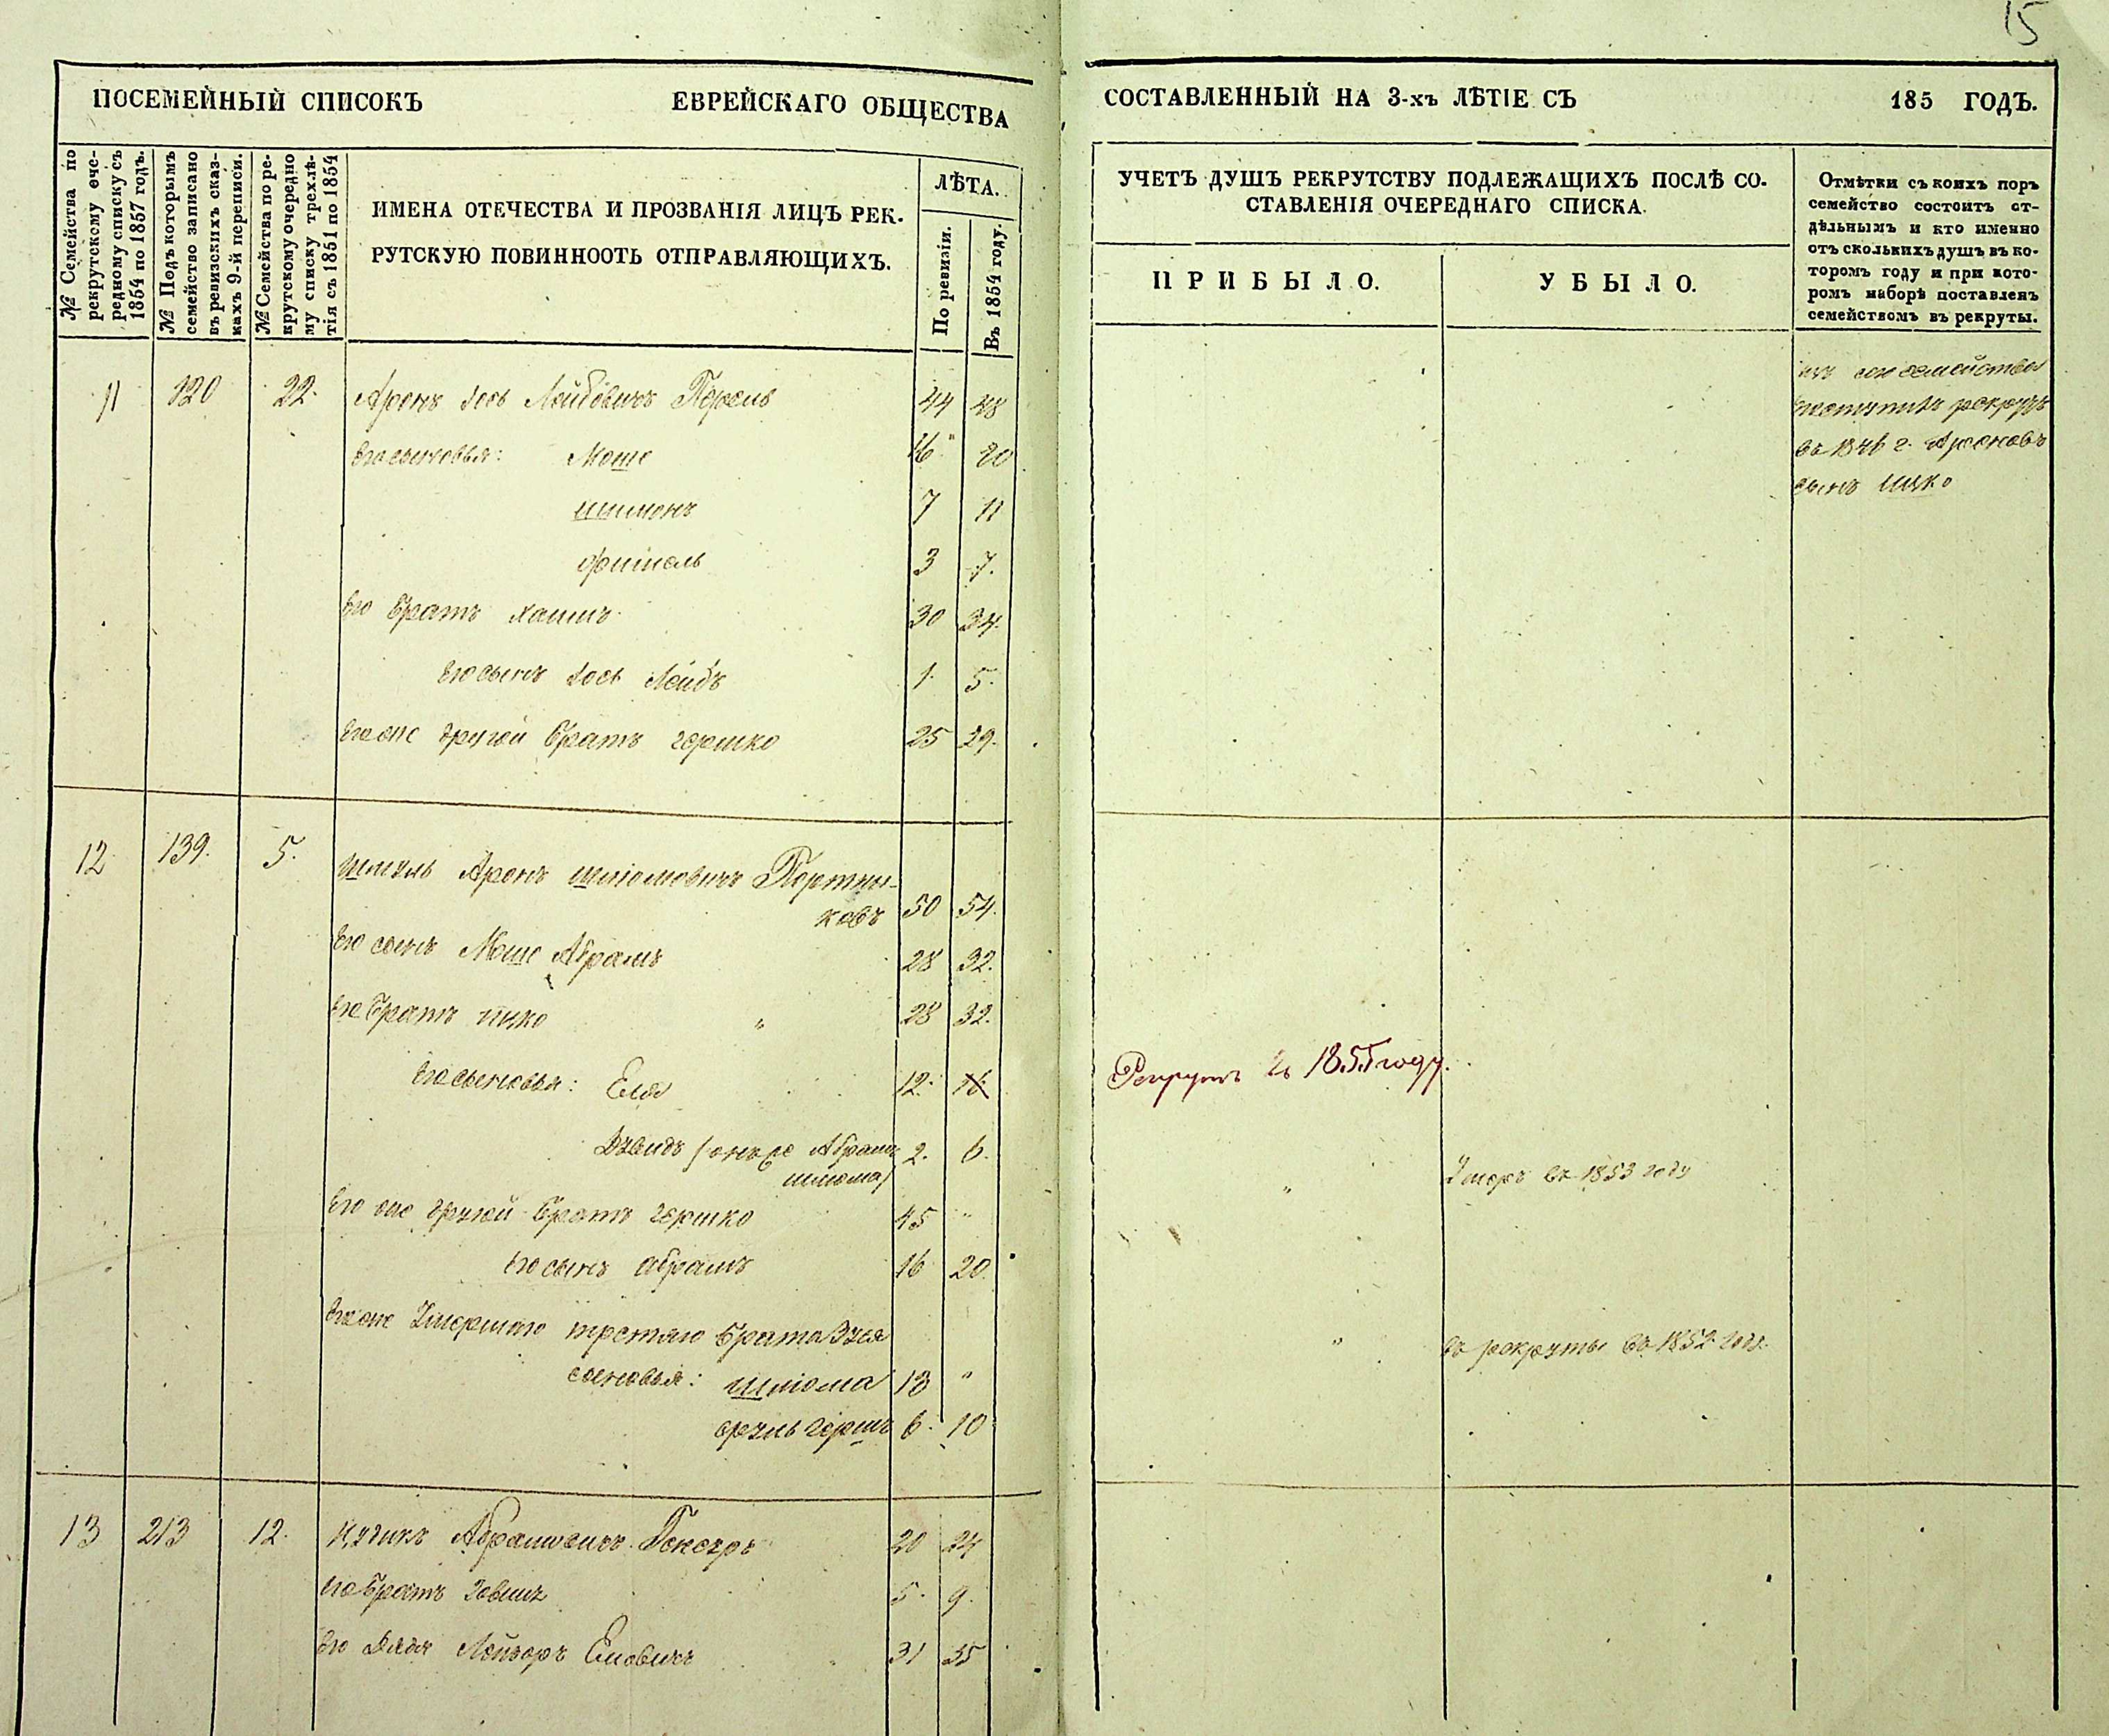 15
ПОСЕМЕЙНЫЙ СПИСОКЪ ЕВРЕЙСКАГО ОБЩЕСТВА
СОСТАВЛЕННЫЙ НА 3-хъ ЛѢТІЕ СЪ 185 ГОДЪ.
№ Семейства по
рекрутскому оче-
редному списку съ
1854 по 1857 годъ.
№ Подъ которымъ
семейство записано
въ ревизскихъ сказ-
кахъ 9-й переписи.
№ Семейства по ре-
крутскому очередно
му списку трехлѣ-
тія съ 1851 по 1854
ИМЕНА ОТЕЧЕСТВА И ПРОЗВАНІЯ ЛИЦЪ РЕК-
РУТСКУЮ ПОВИННООТЬ ОТПРАВЛЯЮЩИХЪ.
ЛѢТА.
По ревизіи.
Въ 1854 году.
УЧЕТЪ ДУШЪ РЕКРУТСТВУ ПОДЛЕЖАЩИХЪ ПОСЛѢ СО-
СТАВЛЕНІЯ ОЧЕРЕДНАГО СПИСКА.
ПРИБЫЛО.
УБЫЛО.
Отмѣтки съ коихъ поръ
семейство состоитъ от-
дѣльнымъ и кто именно
отъ сколькихъ душъ въ ко-
торомъ году и при кото-
ромъ наборѣ поставленъ
семействомъ въ рекруты.
11 120 22. Аронъ Іось Лейбовичъ Перель 44 48
Его сыновья: Моше 16 20
Шимонъ 7 11
Фишель 3 7.
Его братъ Хаимъ 30 34.
Его сынъ Іось Лейбъ 1. 5.
Его же другой братъ Гершко 25 29.
семейства
рекрутъ
въ 1846 г. Ароновъ
сынъ Ицко
12 139. 5. Шмуль Аронъ Шліомовичъ Портни-
ковъ 50 54.
Его сынъ Моше Абрамъ 28 32.
Его братъ Ицко " 28 32.
Его сыновья: Еля 12. 16 Рекрутъ въ 1855 году.
Дувидъ (онъ же Абрамъ 2. 6.
Шлиома)
Его же другой братъ Гершко 45 " " Умеръ въ 1853 году
Его сынъ Абрамъ 16 20.
Его же Умершаго третяго брата Зуся
сыновья: Шліома 13 " " въ рекруты въ 1852 году.
Сруль Гершъ 6. 10
13 213 12. Ицикъ Абрамовичъ 20 24
Его братъ 5. 9.
Его Дядя Лейзоръ Еліовичъ 31 35